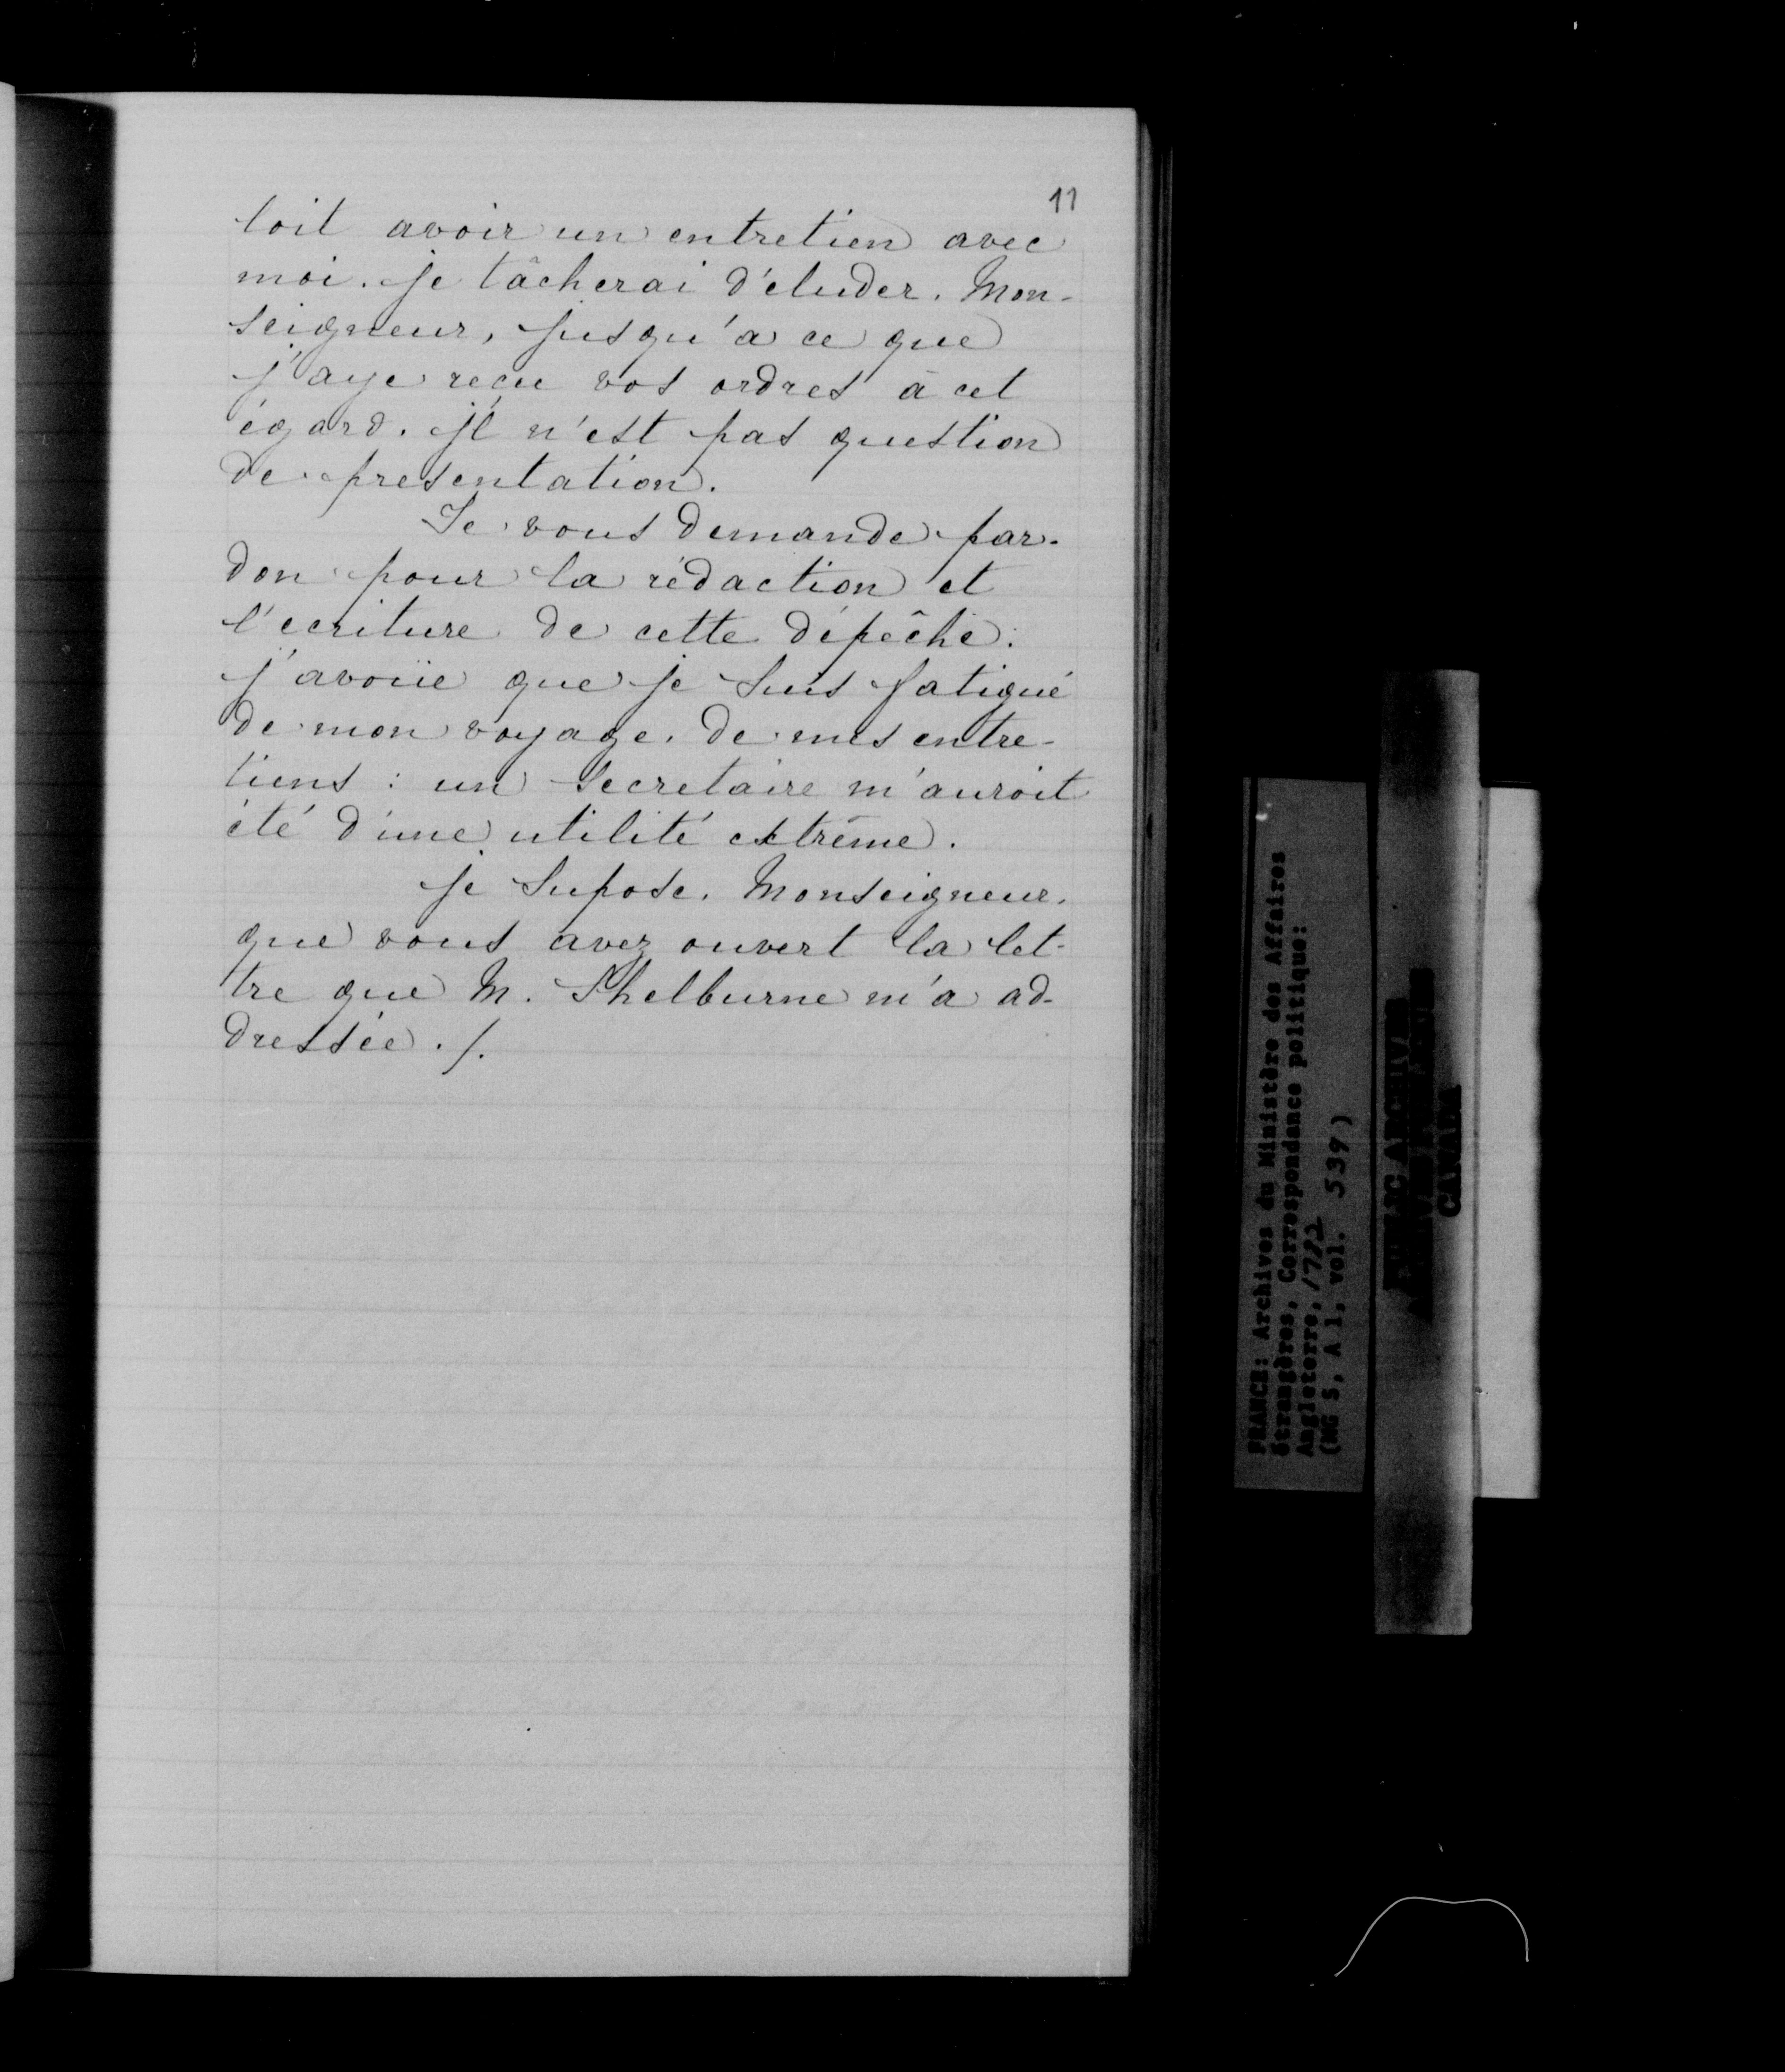 11
loit avoir un entretien avec
moi. je tâcherai d'éluder. Mon-
seigneur, jusqu'a ce que
j'aye reçu vos ordres à cet
égard. jl n'est pas question
de presentation.
Je vous demande par-
don pour la rédaction et
l'ecriture de cette dépêche:
j'avoüe que je suis fatigué
de mon voyage. de mes entre-
tiens : un secretaire m'auroit
été d'une utilité extrême.
je supose. Monseigneur.
que vous avez ouvert la let-
tre que M. Shelburne m'a ad-
dressée ./.
FRANCE: Archives du Ministère des Affaires
étrangères, Correspondance politique:
Angleterre, 1782
(MG 5, A 1, vol. 539)
PUBLIC ARCHIVES
CANADA